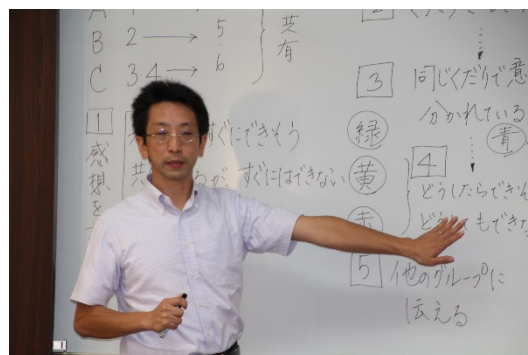 B 2 → 5
C 3.4 → 6
共有
1
感想を
すぐにできそう
が、すぐにはできない
2
3 同じくだりで意
分かれている
緑
黄
赤
青
4
どうしたらできそ
できな
5 他のグループに
伝える